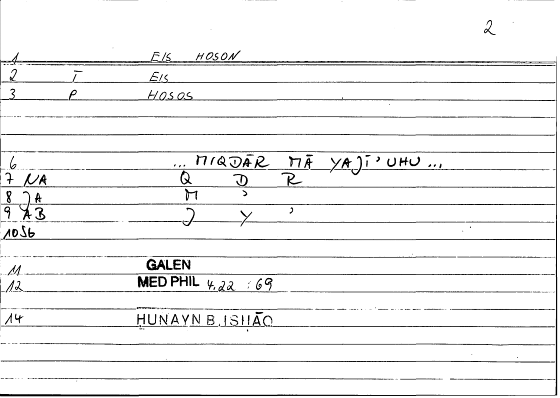 2
1 EIS HOSON
2 T EIS
3 P HOSOS
6 ... MIQDĀR MĀ YAJĪ'UHU ...
7 NA Q D R
8 JA M '
9 AB J Y '
10 SG
11 GALEN
12 MED PHIL 4.22 : 69
14 ḤUNAYN B. ISḤĀQ